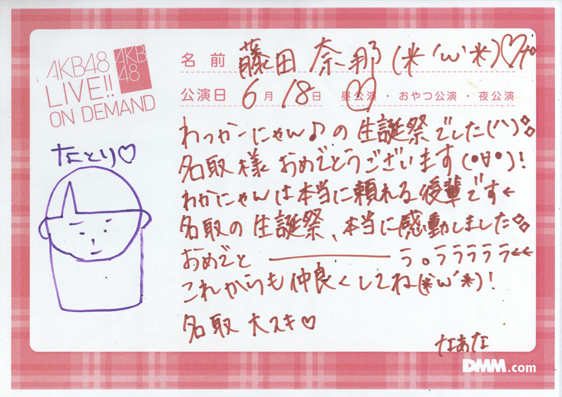 AKB48
LIVE!!
ON DEMAND
AKB
48
名前 藤田奈那(*'ω'*)♡
公演日 6月18日 昼公演・おやつ公演・夜公演
なとり♡
わっかーにゃん♪の生誕祭でした(^^)
名取様 おめでとうございます(°∀°)!
わかにゃんは本当に頼れる後輩です←
名取の生誕祭、本当に感動しました
おめでと――――う。ううううう←←
これからも仲良くしてね(*'ω'*)!
名取 大スキ♡
なぁな
DMM.com